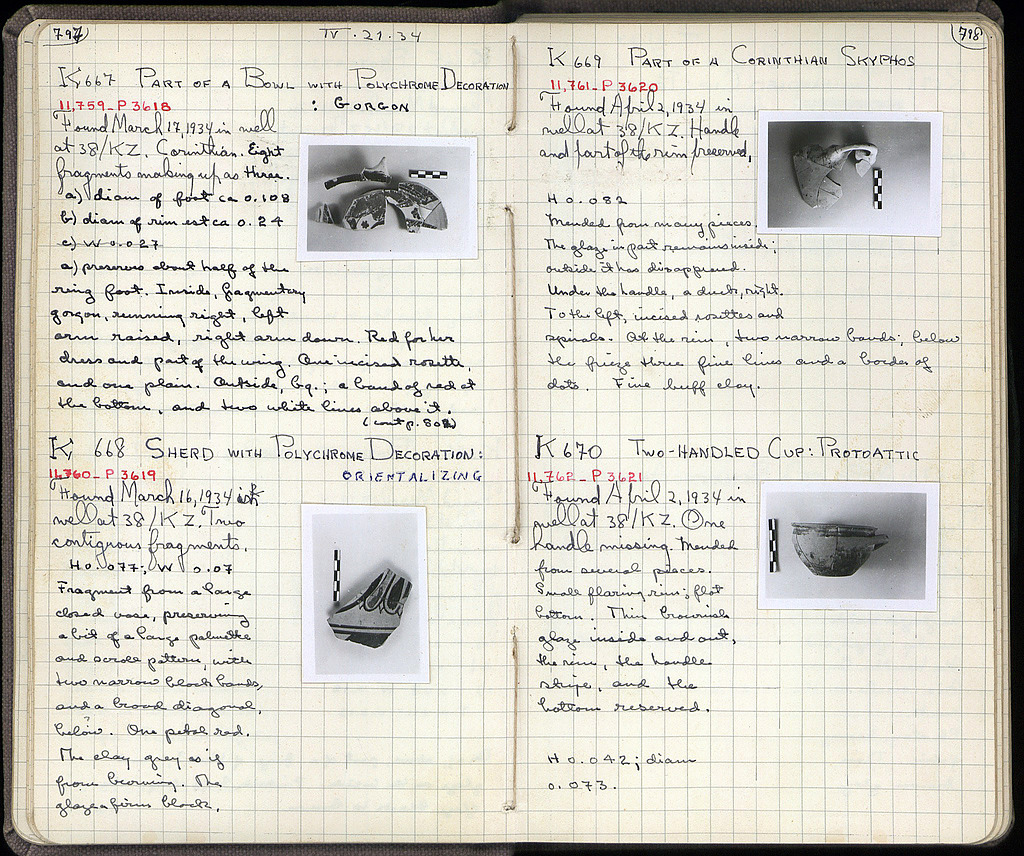 797
IV.21.34
K 667 PART OF A BOWL WITH POLYCHROME DECORATION
: GORGON
11,759 - P 3618
Found March 17, 1934 in well
at 38/KZ. Corinthian. Eight
fragments making up as three.
a) diam of foot ca 0.108
b) diam of rim est ca 0.24
c) W 0.027
a) preserves about half of the
ring foot. Inside, fragmentary
gorgon, running right, left
arm raised, right arm down. Red for her
dress and part of the wing. One incised rosette,
and one plain. Outside, bg.; a band of red at
the bottom, and two white lines above it.
(cont p. 808)
K 668 SHERD WITH POLYCHROME DECORATION:
ORIENTALIZING
11,760 - P 3619
Found March 16, 1934 in
well at 38/KZ. Two
contiguous fragments.
H 0.077; W 0.07
Fragment from a large
closed vase, preserving
a bit of a large palmette
and scroll pattern, with
two narrow black bands,
and a broad diagonal,
below. One petal red.
The clay grey as if
from burning. The
glaze a firm black.
798
K 669 PART OF A CORINTHIAN SKYPHOS
11,761 - P 3620
Found April 2, 1934 in
well at 38/KZ. Handle
and part of the rim preserved.
H 0.082
Mended from many pieces.
The glaze in part remains inside;
outside it has disappeared.
Under the handle, a duck, right.
To the left, incised rosettes and
spirals. At the rim, two narrow bands; below
the frieze three fine lines and a border of
dots. Fine buff clay.
K 670 TWO-HANDLED CUP: PROTOATTIC
11,762 - P 3621
Found April 2, 1934 in
well at 38/KZ. One
handle missing. Mended
from several pieces.
Small flaring rim; flat
bottom. Thin brownish
glaze inside and out,
the rim, the handle
stripe, and the
bottom reserved.
H 0.042; diam
0.073.